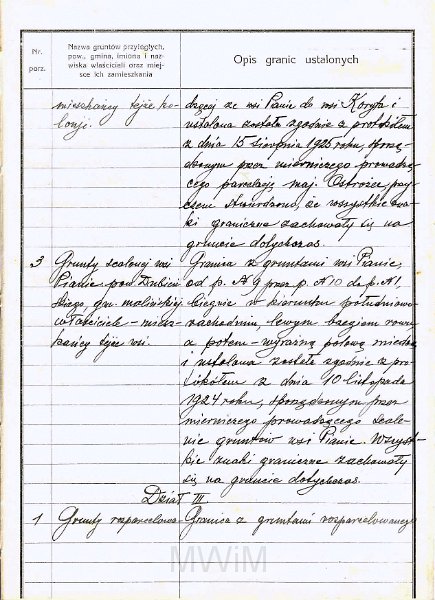 Nr. porz.
Nazwa gruntów przyległych, pow., gmina, imiona i nazwiska właścicieli oraz miejsce ich zamieszkania
Opis granic ustalonych
mieszkańcy tejże ko-
lonji.
dzącej ze wsi Pianie do wsi Koryta i
ustalona została zgodnie z protokółem
z dnia 15 sierpnia 1925 roku, sporzą-
dzonym przez mierniczego prowadzą-
cego parcelację maj. Ostrożec, przy-
czem stwierdzono, że wszystkie zna-
ki graniczne zachowały się na
gruncie dotychczas.
3 Grunty scalonej wsi
Pianie pow. Dubień-
skiego, gm. malińskiej
właściciele - miesz-
kańcy tejże wsi.
Granica z gruntami wsi Pianie,
od p. № 9 przez p. № 10 do p. № 1,
biegnie w kierunku południowo-
zachodnim, lewym brzegiem rowu
a potem - wyraźną polową miedzą
i ustalona została zgodnie z pro-
tokółem z dnia 10 listopada
1924 roku, sporządzonym przez
mierniczego prowadzącego scale-
nie gruntów wsi Pianie. Wszyst-
kie znaki graniczne zachowały
się na gruncie dotychczas.
Dział III
1 Grunty rozparcelowa-
Granica z gruntami rozparcelowanego
MWiM